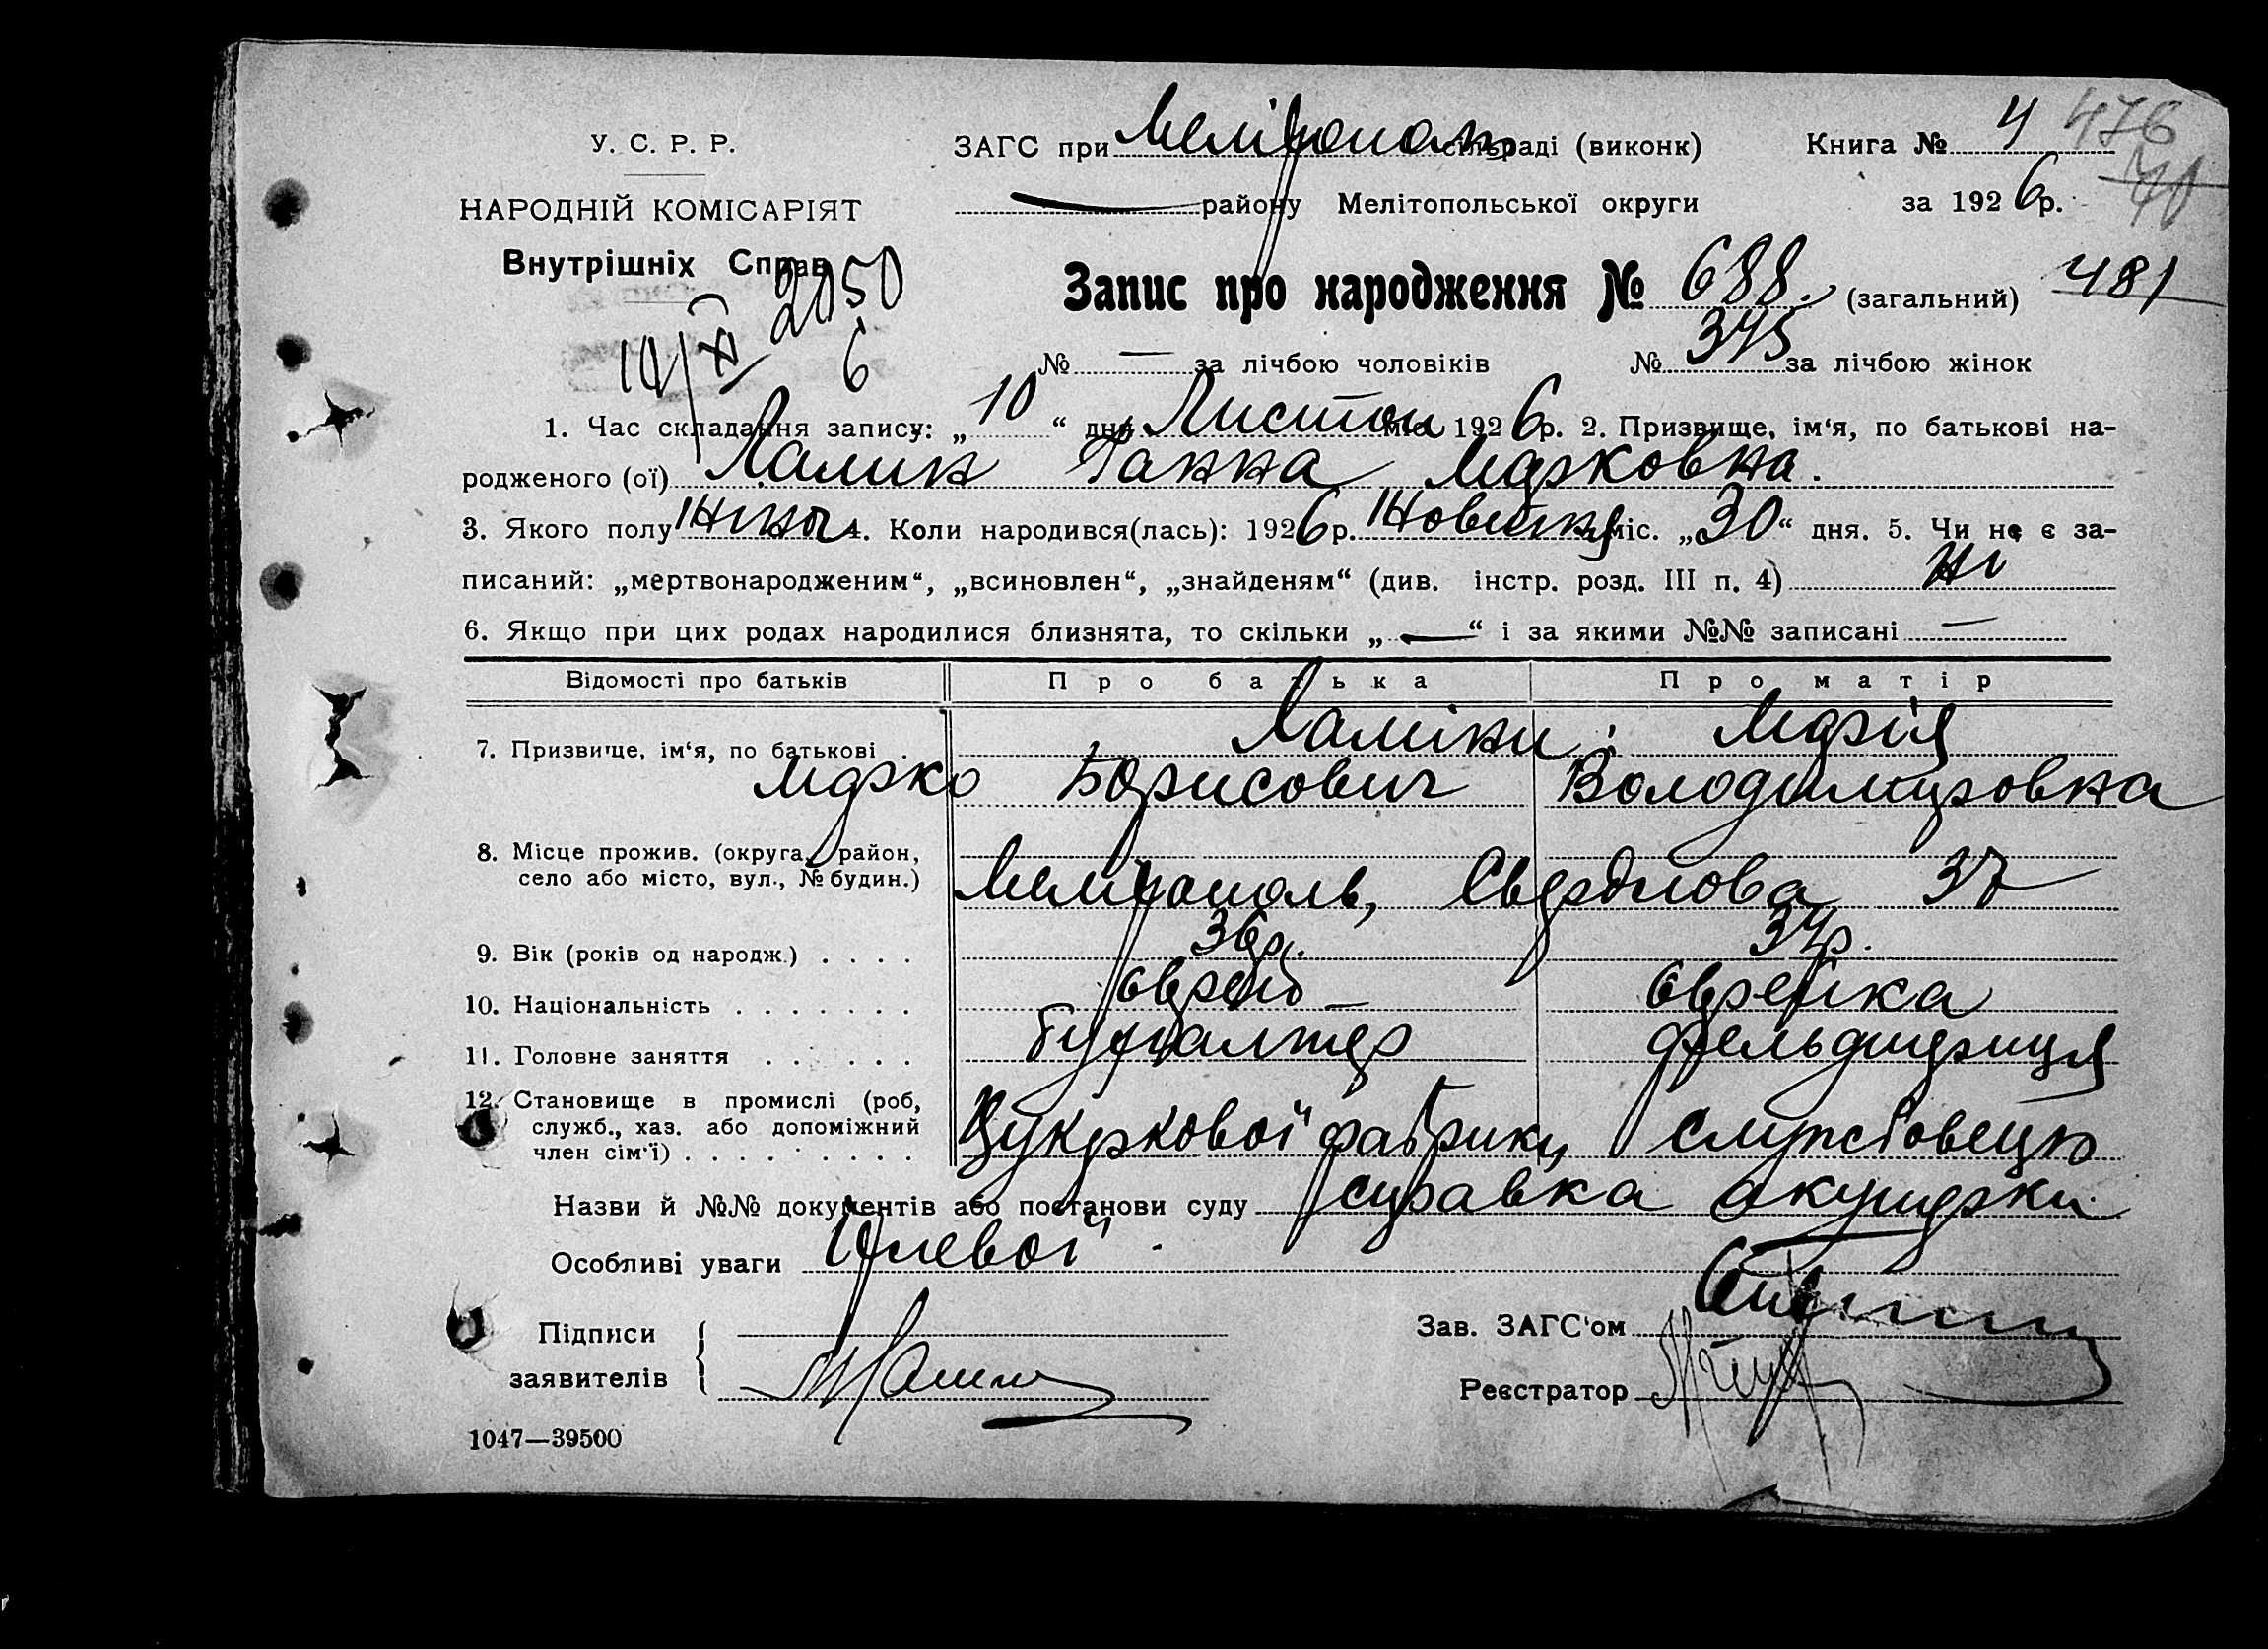 У. С. Р. Р.
НАРОДНІЙ КОМІСАРІЯТ
Внутрішніх Справ
2050
6
ЗАГС при Мелітопол сільраді (виконк)
району Мелітопольської округи
Книга № 4
476
за 1926 р.
Запис про народження № 688. (загальний) 481
№ — за лічбою чоловіків № 345 за лічбою жінок
1. Час складання запису: „10“ дня Листоп міс. 1926 р. 2. Призвище, ім‘я, по батькові на-
родженого (ої) Ламин Ганна Марковна.
3. Якого полу Жіночє 4. Коли народився(лась): 1926 р. Жовтня міс. „30“ дня. 5. Чи не є за-
писаний: „мертвонародженим“, „всиновлен“, „знайденям“ (див. інстр. розд. III п. 4) Ні
6. Якщо при цих родах народилися близнята, то скільки „—“ і за якими №№ записані —
Відомості про батьків Про батька Про матір
7. Призвище, ім‘я, по батькові . Ламіни: Марія
Марко Борисович Володимировна
8. Місце прожив. (округа, район,
село або місто, вул., № будин.) Мелітополь, Свердлова 37
9. Вік (років од народж.) . . . . 36 р. 34 р.
10. Національність . . . . . . . єврей – єврейка
11. Головне заняття . . . . . . бухгалтер фельдшериця
12. Становище в промислі (роб,
служб., хаз. або допоміжний
член сім‘ї) . . . . . . . . . Цукеркової фабрики службовецю
Назви й №№ документів або постанови суду справка акушерки
Особливі уваги
Підписи
заявителів
Зав. ЗАГС‘ом
Реєстратор
1047—39500